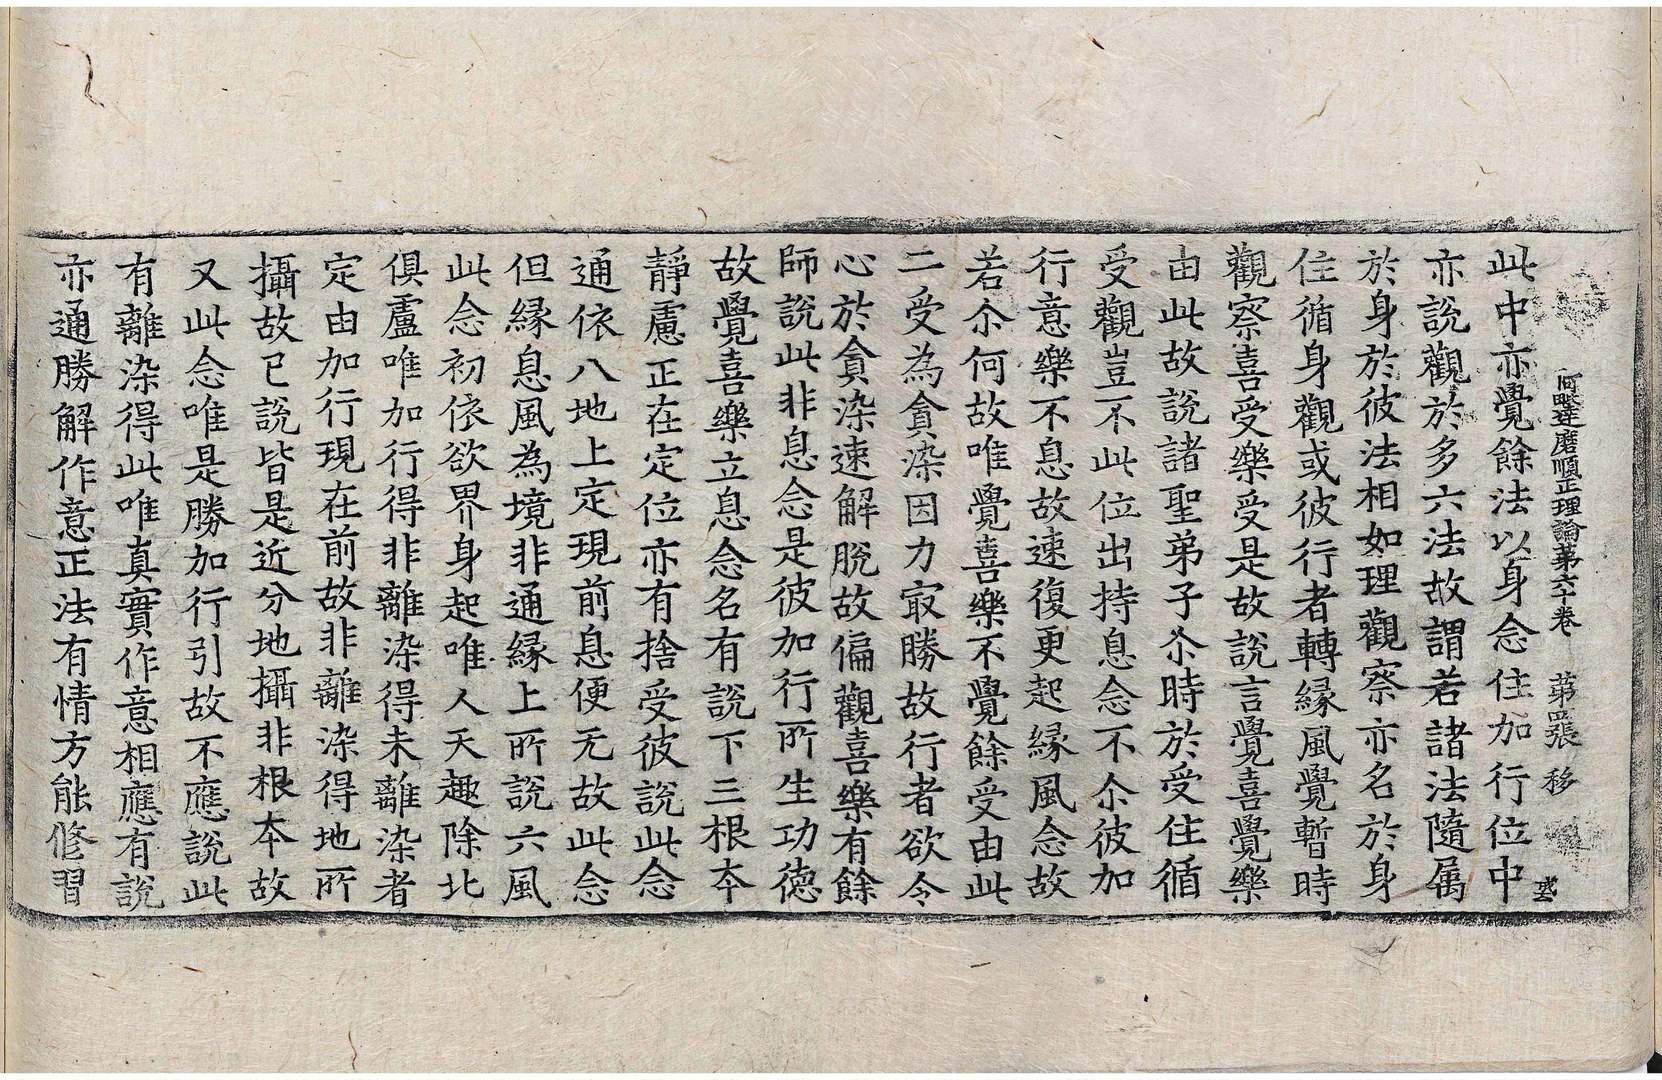 阿毗達磨順正理論第六十卷　第四張　移
此中亦覺餘法以身念住加行位中
亦說觀於多六法故謂若諸法隨属
於身於彼法相如理觀察亦名於身
住循身觀或彼行者轉緣風覺暫時
觀察喜受樂受是故說言覺喜覺樂
由此故說諸聖弟子尒時於受住循
受觀豈不此位出持息念不尒彼加
行意樂不息故速復更起緣風念故
若尒何故唯覺喜樂不覺餘受由此
二受為貪染因力㝡勝故行者欲令
心於貪染速解脫故偏觀喜樂有餘
師說此非息念是彼加行所生功德
故覺喜樂立息念名有說下三根夲
靜慮正在定位亦有捨受彼說此念
通依八地上定現前息便无故此念
但緣息風為境非通緣上所說六風
此念初依欲界身起唯人天趣除北
俱盧唯加行得非離染得未離染者
定由加行現在前故非離染得地所
攝故已說皆是近分地攝非根夲故
又此念唯是勝加行引故不應說此
有離染得此唯真實作意相應有說
亦通勝解作意正法有情方能修習